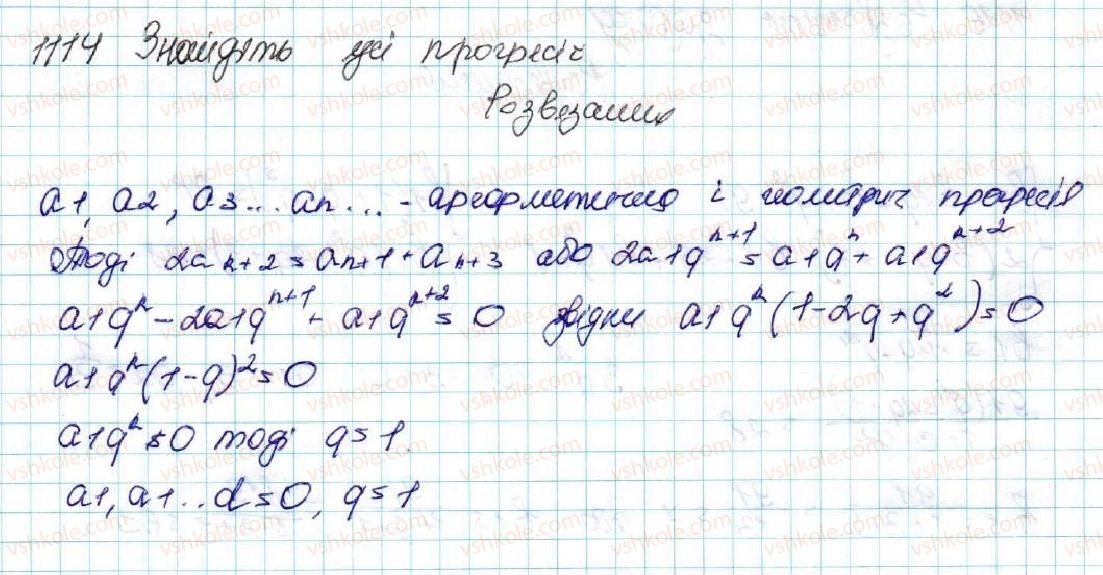 1114 Знайдіть усі прогресії
Розвязання
a1, a2, a3... an... - арифметична і геометрич прогресія
Тоді 2an+2 = an+1 + an+3 або 2a1qⁿ⁺¹ = a1qⁿ + a1qⁿ⁺²
a1qⁿ - 2a1qⁿ⁺¹ + a1qⁿ⁺² = 0 звідки a1qⁿ(1-2q+q²) = 0
a1qⁿ(1-q)² = 0
a1qⁿ ≠ 0 тоді q = 1.
a1, a1... d = 0, q = 1